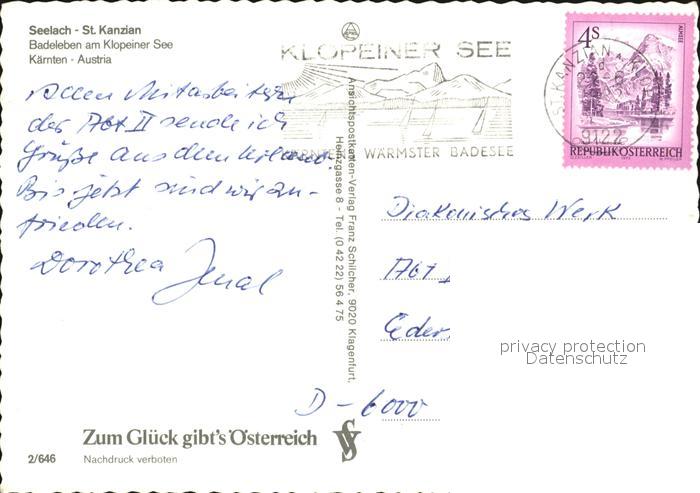 Seelach - St. Kanzian
Badeleben am Klopeiner See
Kärnten - Austria
Allen Mitarbeitern
der Abt II sende ich
Grüße aus dem Urlaub.
Bis jetzt sind wir zu-
frieden.
Dorothea
KLOPEINER SEE
WÄRMSTER BADESEE
4S
ALMSEE
ST. KANZIAN
9122
REPUBLIK ÖSTERREICH
Ansichtspostkarten-Verlag Franz Schilcher, 9020 Klagenfurt,
Heinzgasse 8 - Tel. (0 42 22) 56 4 75
Diakonisches Werk
Abt
Eder
privacy protection
Datenschutz
D - 6000
Zum Glück gibt's Österreich
2/646
Nachdruck verboten